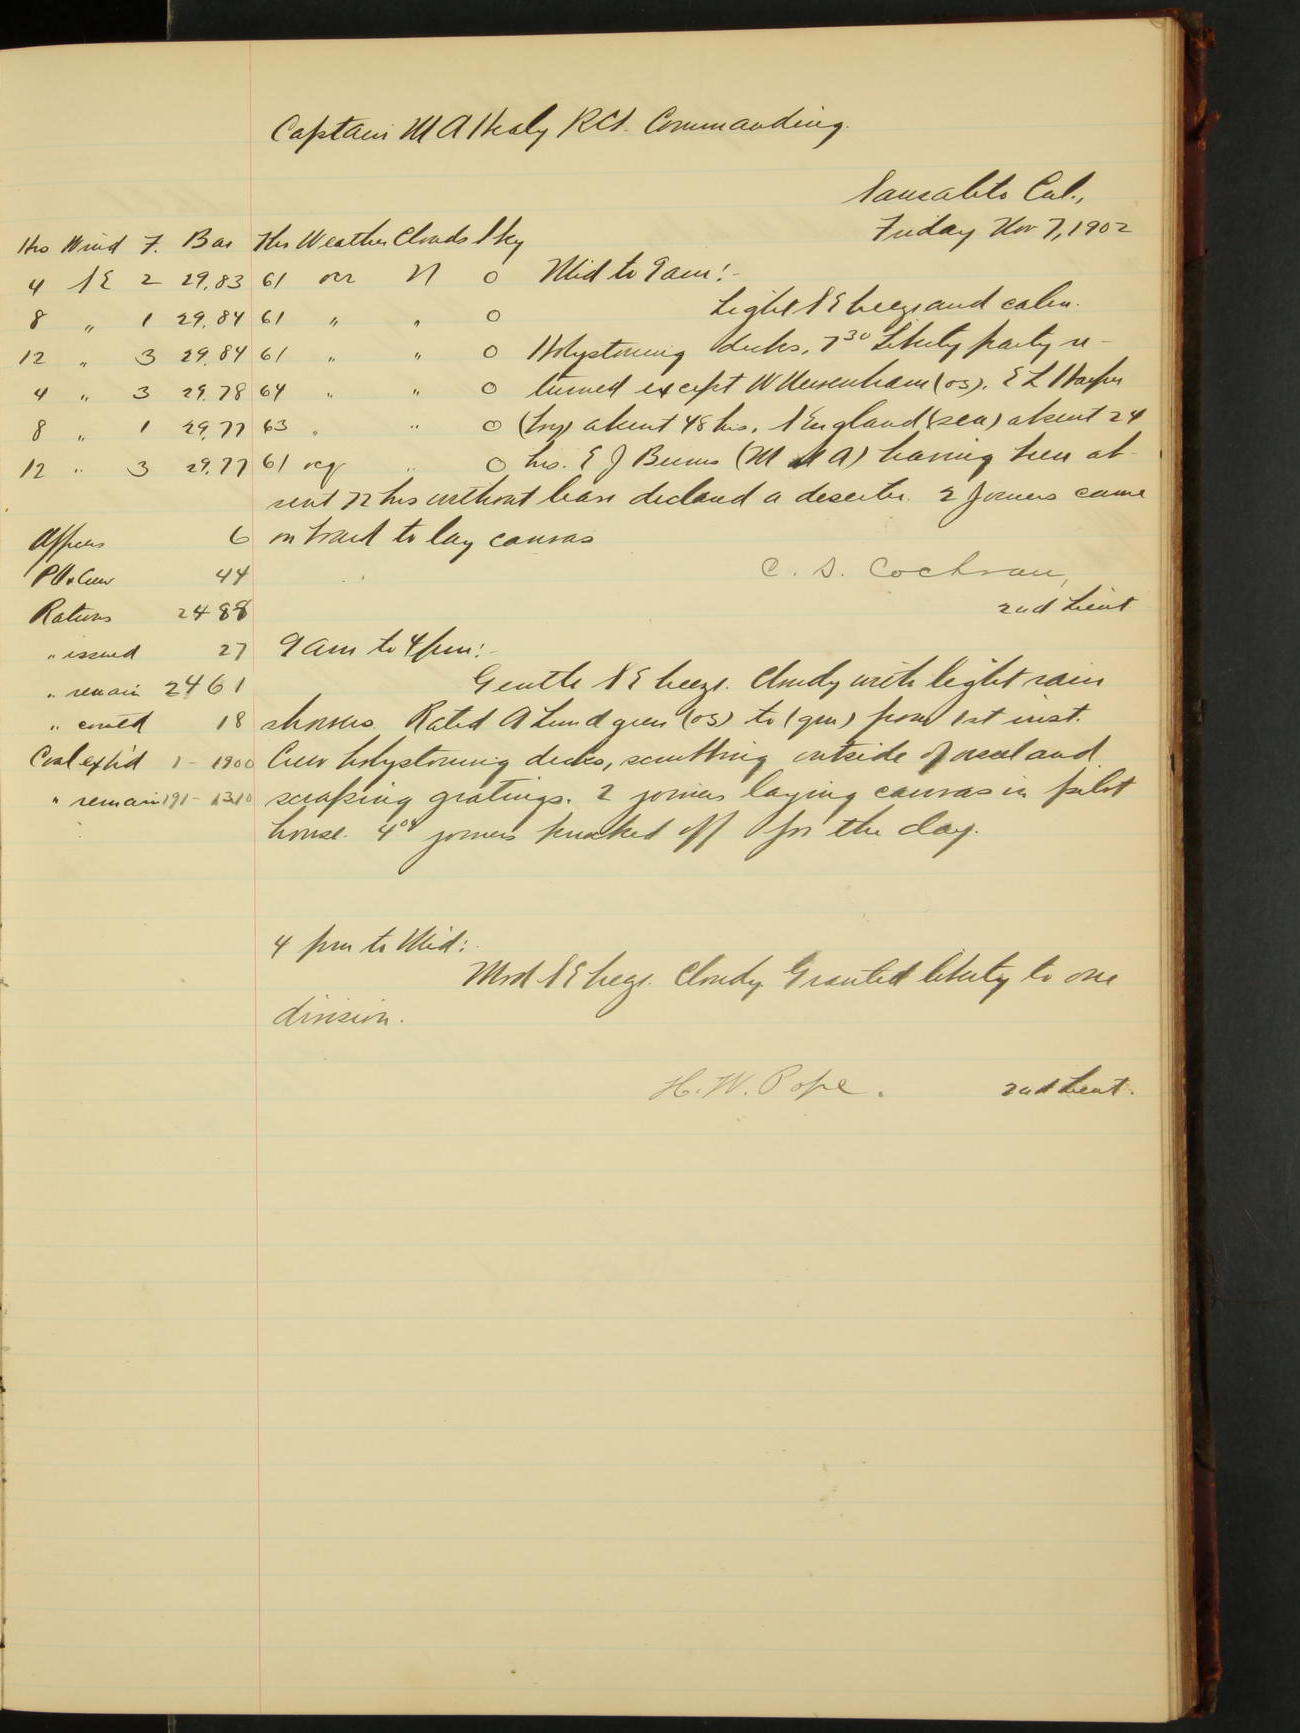 Captain M A Healy RCS. Commanding.
Sausalito Cal.,
Friday Nov 7, 1902
Hrs Wind F. Bar Ther Weather Clouds Sky
4 SE 2 29.83 61 ocr N 0 Mid to 9am:-
Light SE breeze and calm.
8 " 1 29.84 61 " " 0
12 " 3 29.84 61 " " 0 Holystoning decks, 7 30 Liberty party re-
4 " 3 29.78 64 " " 0 turned except W (os), E L Harper
8 " 1 29.77 63 " " 0 absent 48 hrs, S England (sea) absent 24
12 " 3 29.77 61 ocg " 0 hrs. E J Burns (M A A) having been ab-
sent 72 hrs without leave declared a deserter. 2 Joiners came
Officers 6 on board to lay canvas
P.O. & Crew 44 C. S. Cochran,
Rations 2488 2nd Lieut
" issued 27 9 am to 4 pm:-
" remain 2461 Gentle SE breeze. Cloudy with light rain
" com'td 18 showers. Rated A Lundgren (os) to (qm) from 1st inst.
Coal exp'd 1 - 1900 Crew holystoning decks, scrubbing outside of vessel and
" remain 191 - 1310 scraping gratings. 2 joiners laying canvas in pilot
house. 4 00 joiners knocked off for the day.
4 pm to Mid:
Mod SE breeze. Cloudy. Granted liberty to one
division.
H. W. Pope. 2nd Lieut.